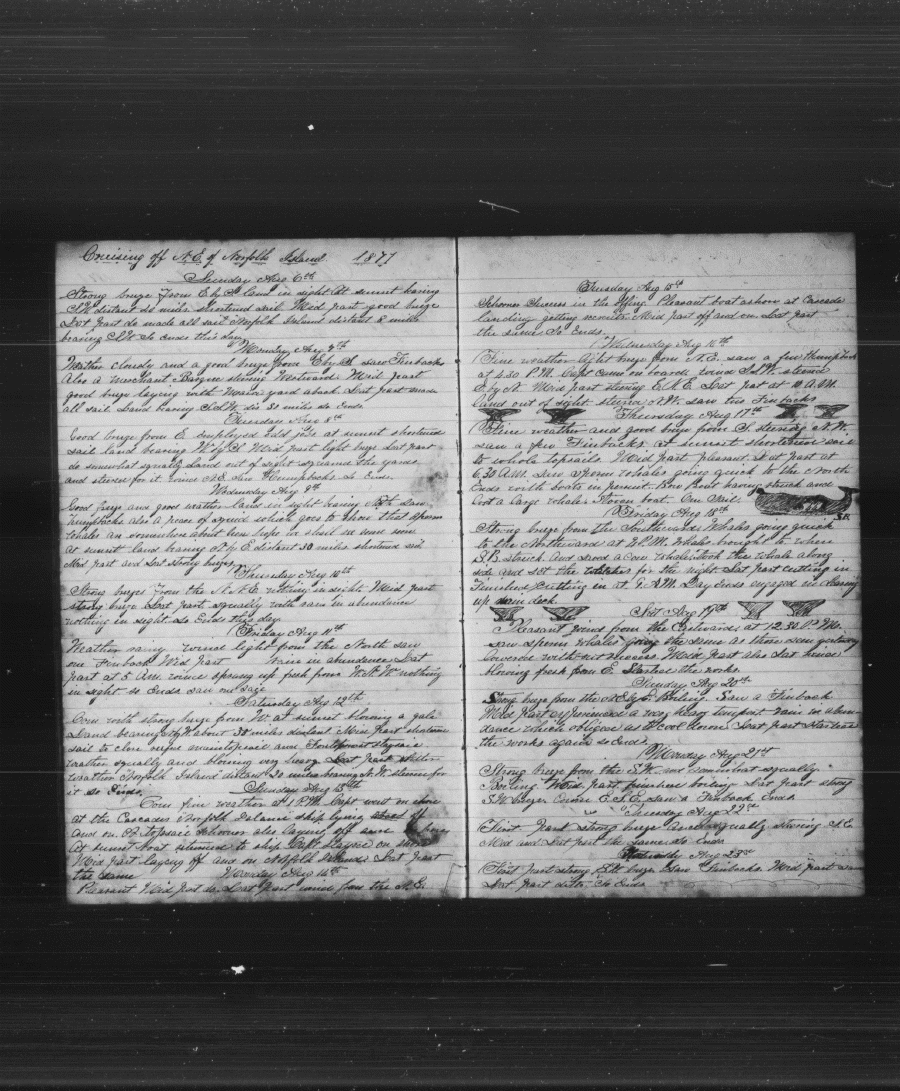 Cruising off N.E. of Norfolk Island. 1877
Sunday Aug 6th
Strong breeze from E by S land in sight at sunset baring
S.W. distant 20 miles. Shortend sail. Mid part good breeze
Last part do made all sail Norfolk Island distant 8 miles
bearing S.W. So Ends this day
Monday Aug 7th
Wether cloudy and a good breeze from E by S. saw Finbacks
Also a merchant Barque stering Westward. Mid part
good breeze laying with Main yard aback Last part made
all sail. Land bearing S.W. dis 30 miles So Ends
Tuesday Aug 8th
Good breeze from E employed odd jobs at sunset shortened
sail land bearing W by S Mid part light breeze Last part
do somewhat squally Land out of sight squared the yards
and steered for it wind N.E. saw Humpbacks So Ends.
Wednesday Aug 9th
Good breeze and good wether land in sight bearing saw
humpbacks also a peace of squid which goes to show that sperm
whales are somewhere about here hope to shall see one soon
At sunset land bearing N by E distant 30 miles shortend sail
Mid part and Last Strong breezes
Thursday Aug 10th
Strong breezes from the N.N.E. nothing in sight. Mid part
strong breeze Last part squally with rain in abundance
nothing in sight So Ends this day.
Friday Aug 11th
Weather rainy wind light from the North saw
one Finback Mid part rain in abundance Last
part at 5 A.M. wind sprung up fresh from W.N.W. nothing
in sight so Ends saw no
Saturday Aug 12th
Com with strong breeze from W. at sunset blowing a gale
Land bearing about 35 miles distant Mid part shortend
sail to close reefed maintopsail and Foretopmost staysail
weather squally and blowing very heavy Last part stiller
weather Norfolk Island distant 20 miles bearing N.W. steering for
it So Ends.
Sunday Aug 13th
Com fine weather at 1 P.M. Capt went on shore
at the Cascades Norfolk Island ship lying off
and on A topsail schooner also laying off
At sunset boat returned to ship Capt staying on shore
Mid part laying off and on Norfolk Islands Last part
the same
Monday Aug 14th
Pleasant Mid part do. Last Part wind from the N.E.
Tuesday Aug 15th
Schooner Sucsess in the offing Pleasant boat ashore at Cascade
landing getting recruits. Mid part off and on Last part
the same So Ends.
Wednesday Aug 16th
Fine weather light breeze from N.E. saw a few Humpbacks
at 4.30 P.M. Capt came on board, wind S.W. steered
E by N. Mid part stering E.N.E. Last part at 10 A.M.
land out of sight steering N.W. saw two Finbacks
Thursday Aug 17th
Fine weather and good breeze from S. stering N.W.
saw a few Finbacks at sunset shortened sail
to whole topsails. Mid part pleasant Last part at
6.30 A.M. saw sperm whales going quick to the North
Ends with boats in persuit. Bow boat having struck and
Got a large whale. Stoven boat. One Sail.
Friday Aug 18th
Strong breeze from the Southward. Whales going quick
to the Northward at P.M. Whales brought to where
S.B. struck. And saved a cow whale took the whale along
side and set the watches for the night Last part cutting in
Finished Cutting in at 9. A.M. Day Ends engaged in clearing
up deck
S.B.
Sat Aug 19th
Pleasant wind from the Eastward at 12.30 P.M.
saw sperm whales going the same as those seen yesterday
lowered without success. Mid part also Last wind
blowing fresh from E. Started the works.
Sunday Aug 20th
Strong breeze from the Boiling. Saw a Finback
Mid part experienced a very heavy tempest rain in abun-
dance which obliged us to cool down Last part started
the works again so Ends.
Monday Aug 21st
Strong breeze from the S.W. and somewhat squally
Boiling. Mid part finished boiling Last part strong
S.W. breeze course E.S.E. saw a Finback Ends
Tuesday Aug 22nd
First part strong breeze and squally steering S.E.
Mid and Last part the same So Ends
Wednesday Aug 23rd
First part strong S.W. breeze saw Finbacks Mid part same
Last part ditto So Ends